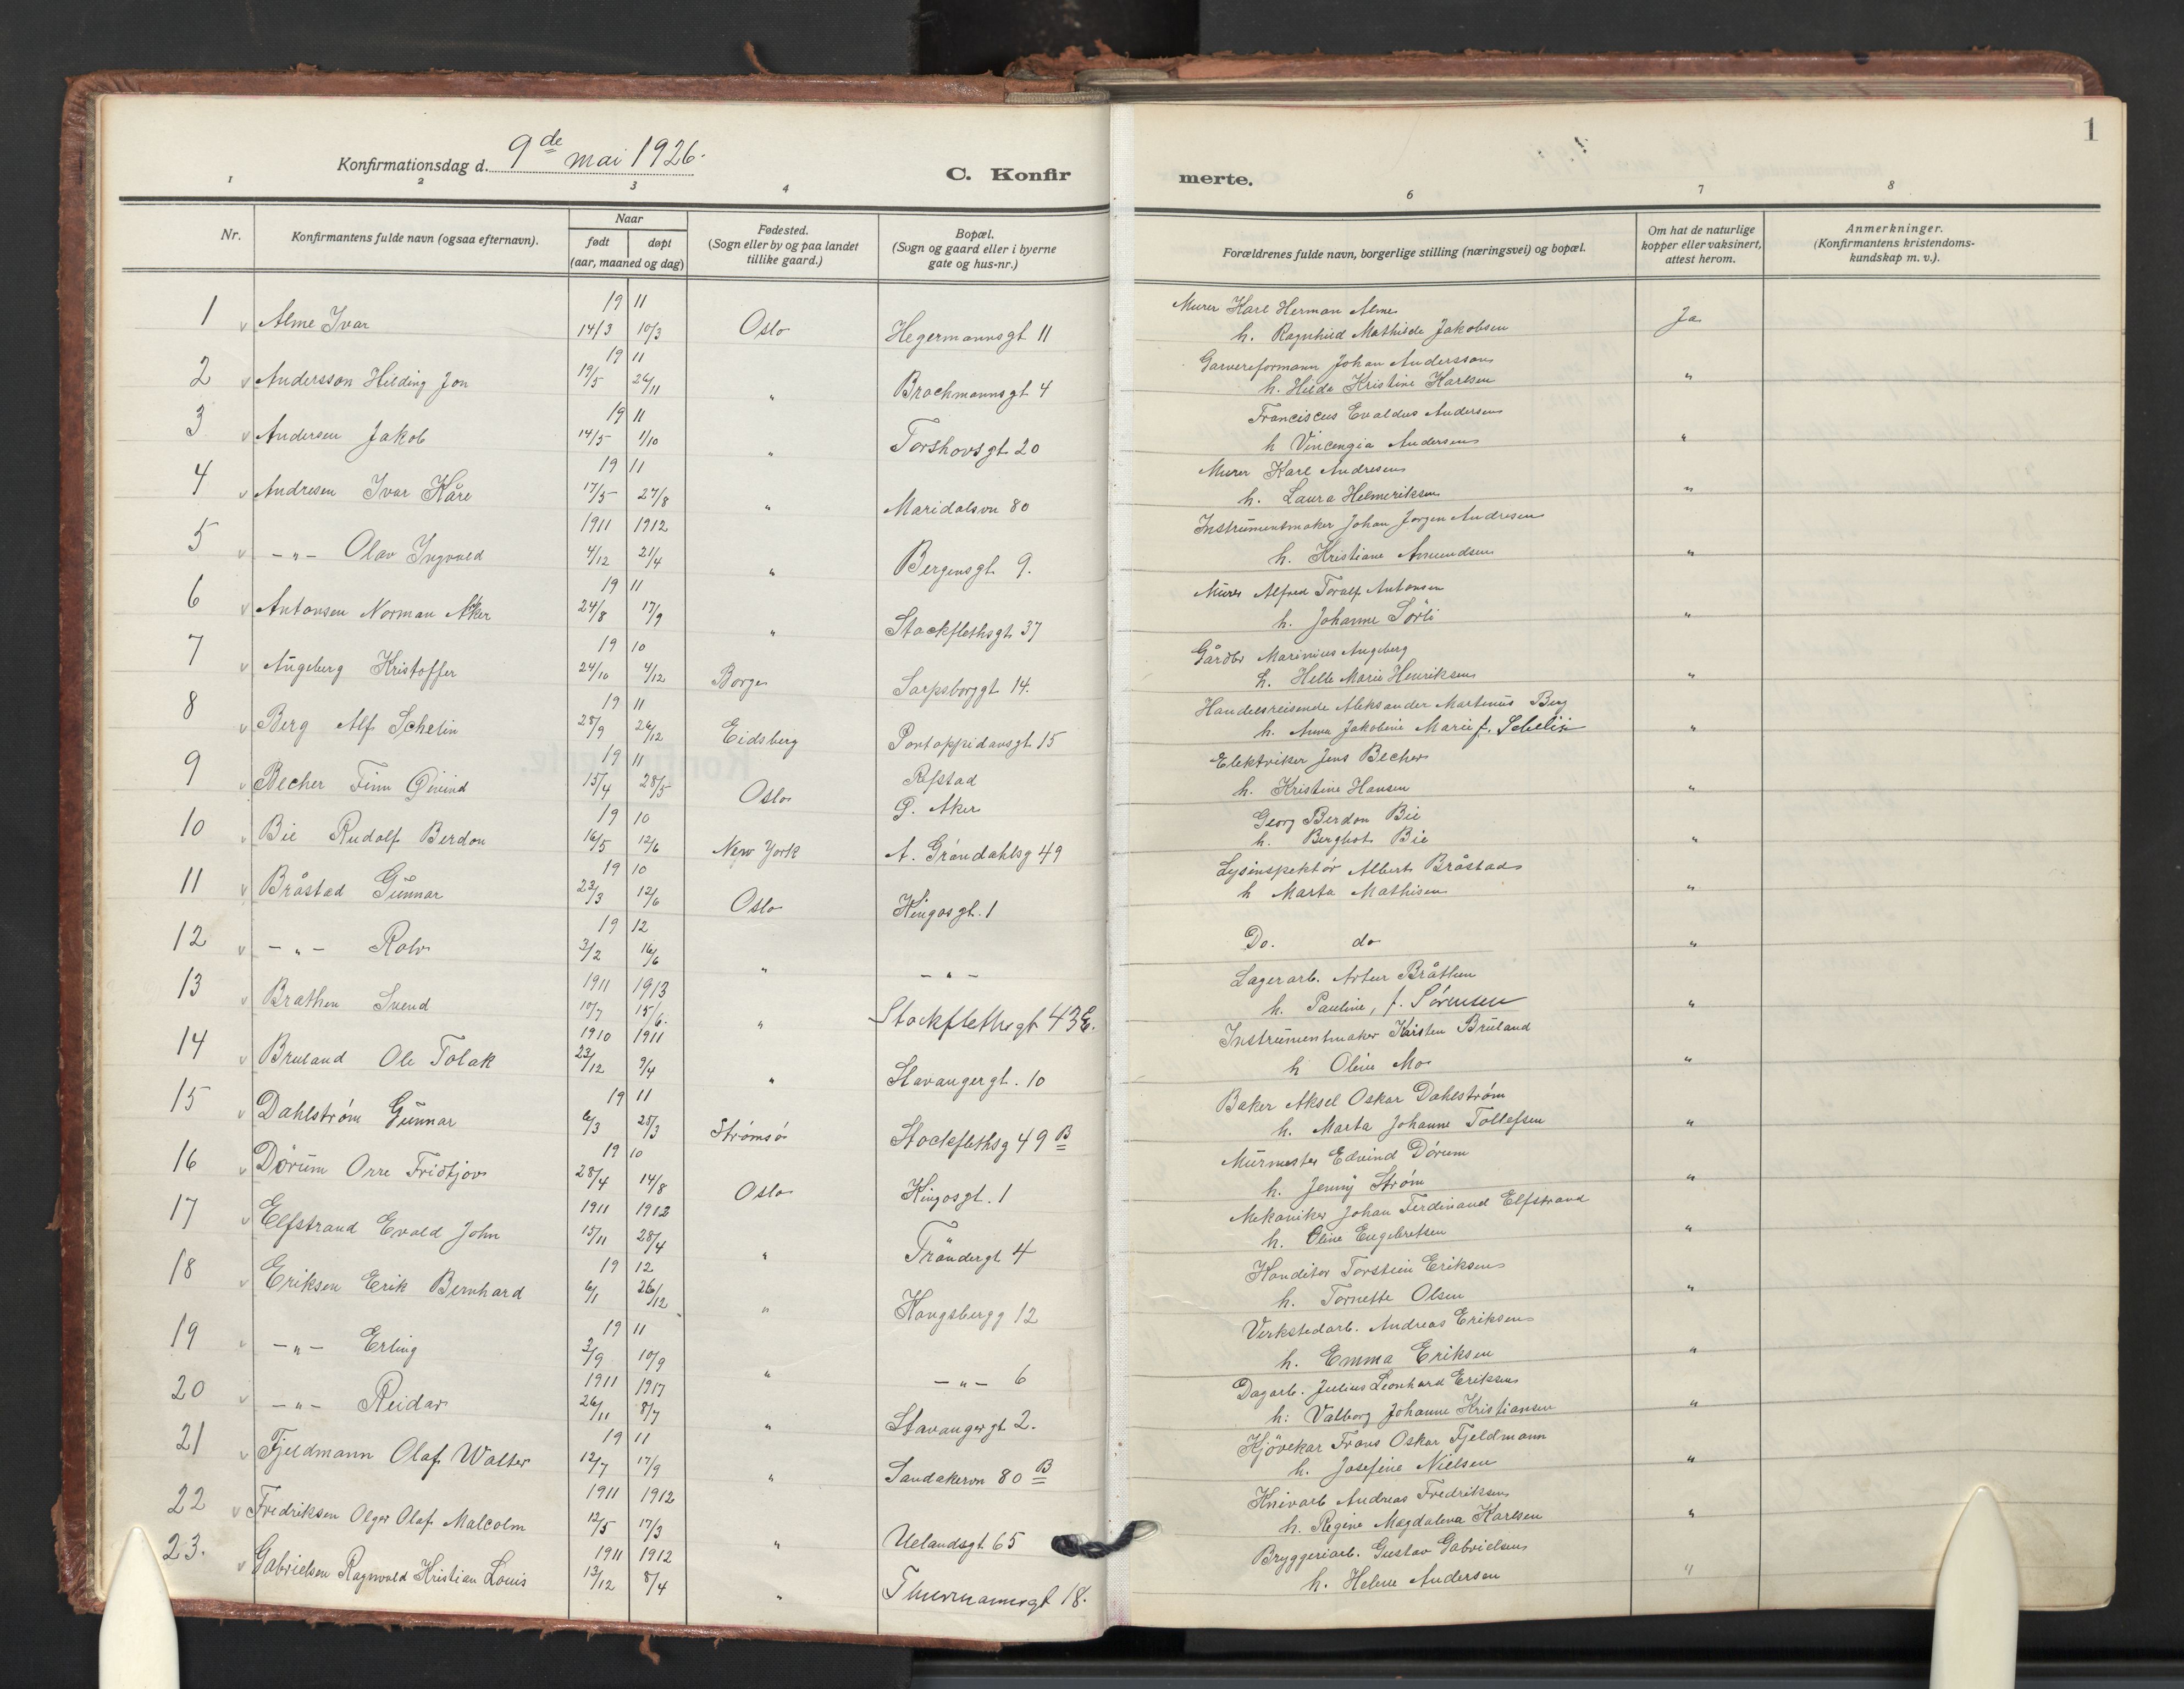 1
Konfirmationsdag d. 9de mai 1926.
C. Konfirmerte.
1 2 3 4 6 7 8
Nr. Konfirmantens fulde navn (ogsaa efternavn). Naar født døpt (aar, maaned og dag) Fødested. (Sogn eller by og paa landet tillike gaard.) Bopæl. (Sogn og gaard eller i byerne gate og hus-nr.) Forældrenes fulde navn, borgerlige stilling (næringsvei) og bopæl. Om hat de naturlige kopper eller vaksinert, attest herom. Anmerkninger. (Konfirmantens kristendoms-kundskap m. v.).
1 v Alme Ivar 19 11 14/3 10/3 Oslo Hegermannsgt 11 Murer Karl Herman Alme
h. Ragnhild Mathilde Jakobsen Ja
2 v Andersson Hilding Jon 19 11 19/5 26/11 " Brochmannsgt 4 Garvereformann Johan Andersson
h. Hilda Kristine Karlsen "
3 v Andersen Jakob 19 11 14/5 1/10 " Torshovsgt 20 Franciscus Evaldus Andersen
h Vincengia Andersen "
4 v Andresen Ivar Kåre 19 11 17/5 27/8 " Maridalsvn 80 Murer Karl Andresen
h. Laura Helmeriksen "
5 v -"- Olav Ingvald 1911 1912 4/12 21/4 " Bergensgt 9. Instrumentmaker Johan Jørgen Andresen
h. Kristiane Amundsen "
6 v Antonsen Norman Aker 19 11 24/8 17/9 " Stockflethsgt 37 Murer Alfred Toralf Antonsen
h. Johanne Sörli "
7 v Augeberg Kristoffer 19 10 24/10 4/12 Borge Sarpsborggt 14. Gårdbr Marinius Augeberg
h. Helle Marie Henriksen "
8 v Berg Alf Schelin 19 11 28/9 26/12 Eidsberg Pontoppidansgt 15 Handelsreisende Aleksander Martenius Berg
h. Anna Jakobine Marie f. Schelin "
9 v Becher Finn Øivind 19 11 15/4 28/5 Oslo Refstad
Ø. Aker Elektriker Jens Becher
h. Kristine Hansen "
10 v Bie Rudolf Berdon 19 10 16/5 12/6 New York A. Grøndahlsg 49 Georg Berdon Bie
h. Berghot Bie "
11 v Bråstad Gunnar 19 10 23/3 12/6 Oslo Kingosgt. 1 Lysinspektör Albert Bråstad
h Marta Mathisen "
12 v -"- Rolv 19 12 3/2 16/6 " -"- Do. do "
13 v Brathen Svend 1911 1913 10/7 15/6. " Stockflethsgt 43 E. Lagerarb. Artur Bråthen
h. Pauline, f. Sörensen "
14 v Bruland Ole Tolak 1910 1911 23/12 9/4 " Stavangergt. 10 Instrumentmaker Karsten Bruland
h Oline Mo "
15 v Dahlstrøm Gunnar 19 11 6/3 25/3 Strømsö Stockflethsg 49 B Baker Aksel Oskar Dahlstrøm
h. Marta Johanne Tollefsen "
16 v Dörum Orre Fridtjov 19 10 28/4 14/8 Oslo Kingosgt. 1 Murmester Edvind Dörum
h. Jenny Strøm "
17 v Elfstrand Evald John 1911 1912 15/11 28/4 " Tröndergt 4 Mekaniker Johan Ferdinand Elfstrand
h. Oline Engebretsen "
18 v Eriksen Erik Bernhard 19 12 6/1 26/12 " Kongsbergg 12 Konditor Torstein Eriksen
h. Tornette Olsen "
19 v -"- Erling 19 11 3/9 10/9 " -"- 6 Verkstedarb. Andreas Eriksen
h. Emma Eriksen "
20 v -"- Reidar 1911 1917 26/11 8/7 " Stavangergt 2. Dagarb. Julius Leonhard Eriksen
h: Valborg Johanne Kristiansen "
21 v Fjeldmann Olaf Walter 19 11 12/7 17/9 " Sandakervn 80 B Kjörekar Frans Oskar Fjeldmann
h. Josefine Nielsen "
22 v Fredriksen Olger Olaf Malcolm 1911 1912 12/5 17/3 " Uelandsgt 65 Knivarb Andreas Fredriksen
h. Regine Magdalena Karlsen "
23. v Gabrielsen Ragnvald Kristian Louis 1911 1912 13/12 8/4 " Thurmannsgt 18. Bryggeriarb. Gustav Gabrielsen
h. Helene Andersen "